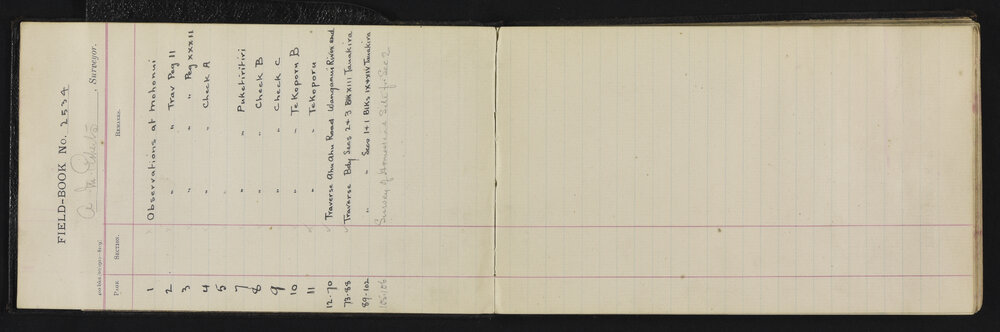 FIELD-BOOK No. 2534
, Surveyor.
PAGE SECTION. REMARKS.
1 Observations at Mohonui
2 " " Trav Peg 11
3 " " Peg XXXII
4 " " Check A
5
7 " " Puketiritiri
8 " " Check B
9 " " Check C
10 " " Te Koporu B
11 " " Tekoporu
12-70 Traverse Ahu Ahu Road Wanganui River end
73-88 Traverse Bdy Secs 2+3 Blk XIII Tauakira
89-102 " " Secs 1+1 Blks IX+XIV Tauakira
105-106 Survey of Homestead Sec 2